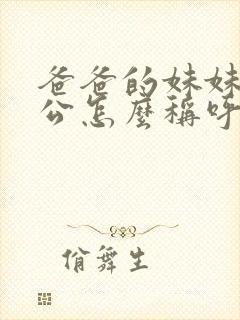 爸爸的妹妹
公怎麼稱呼
俏舞生